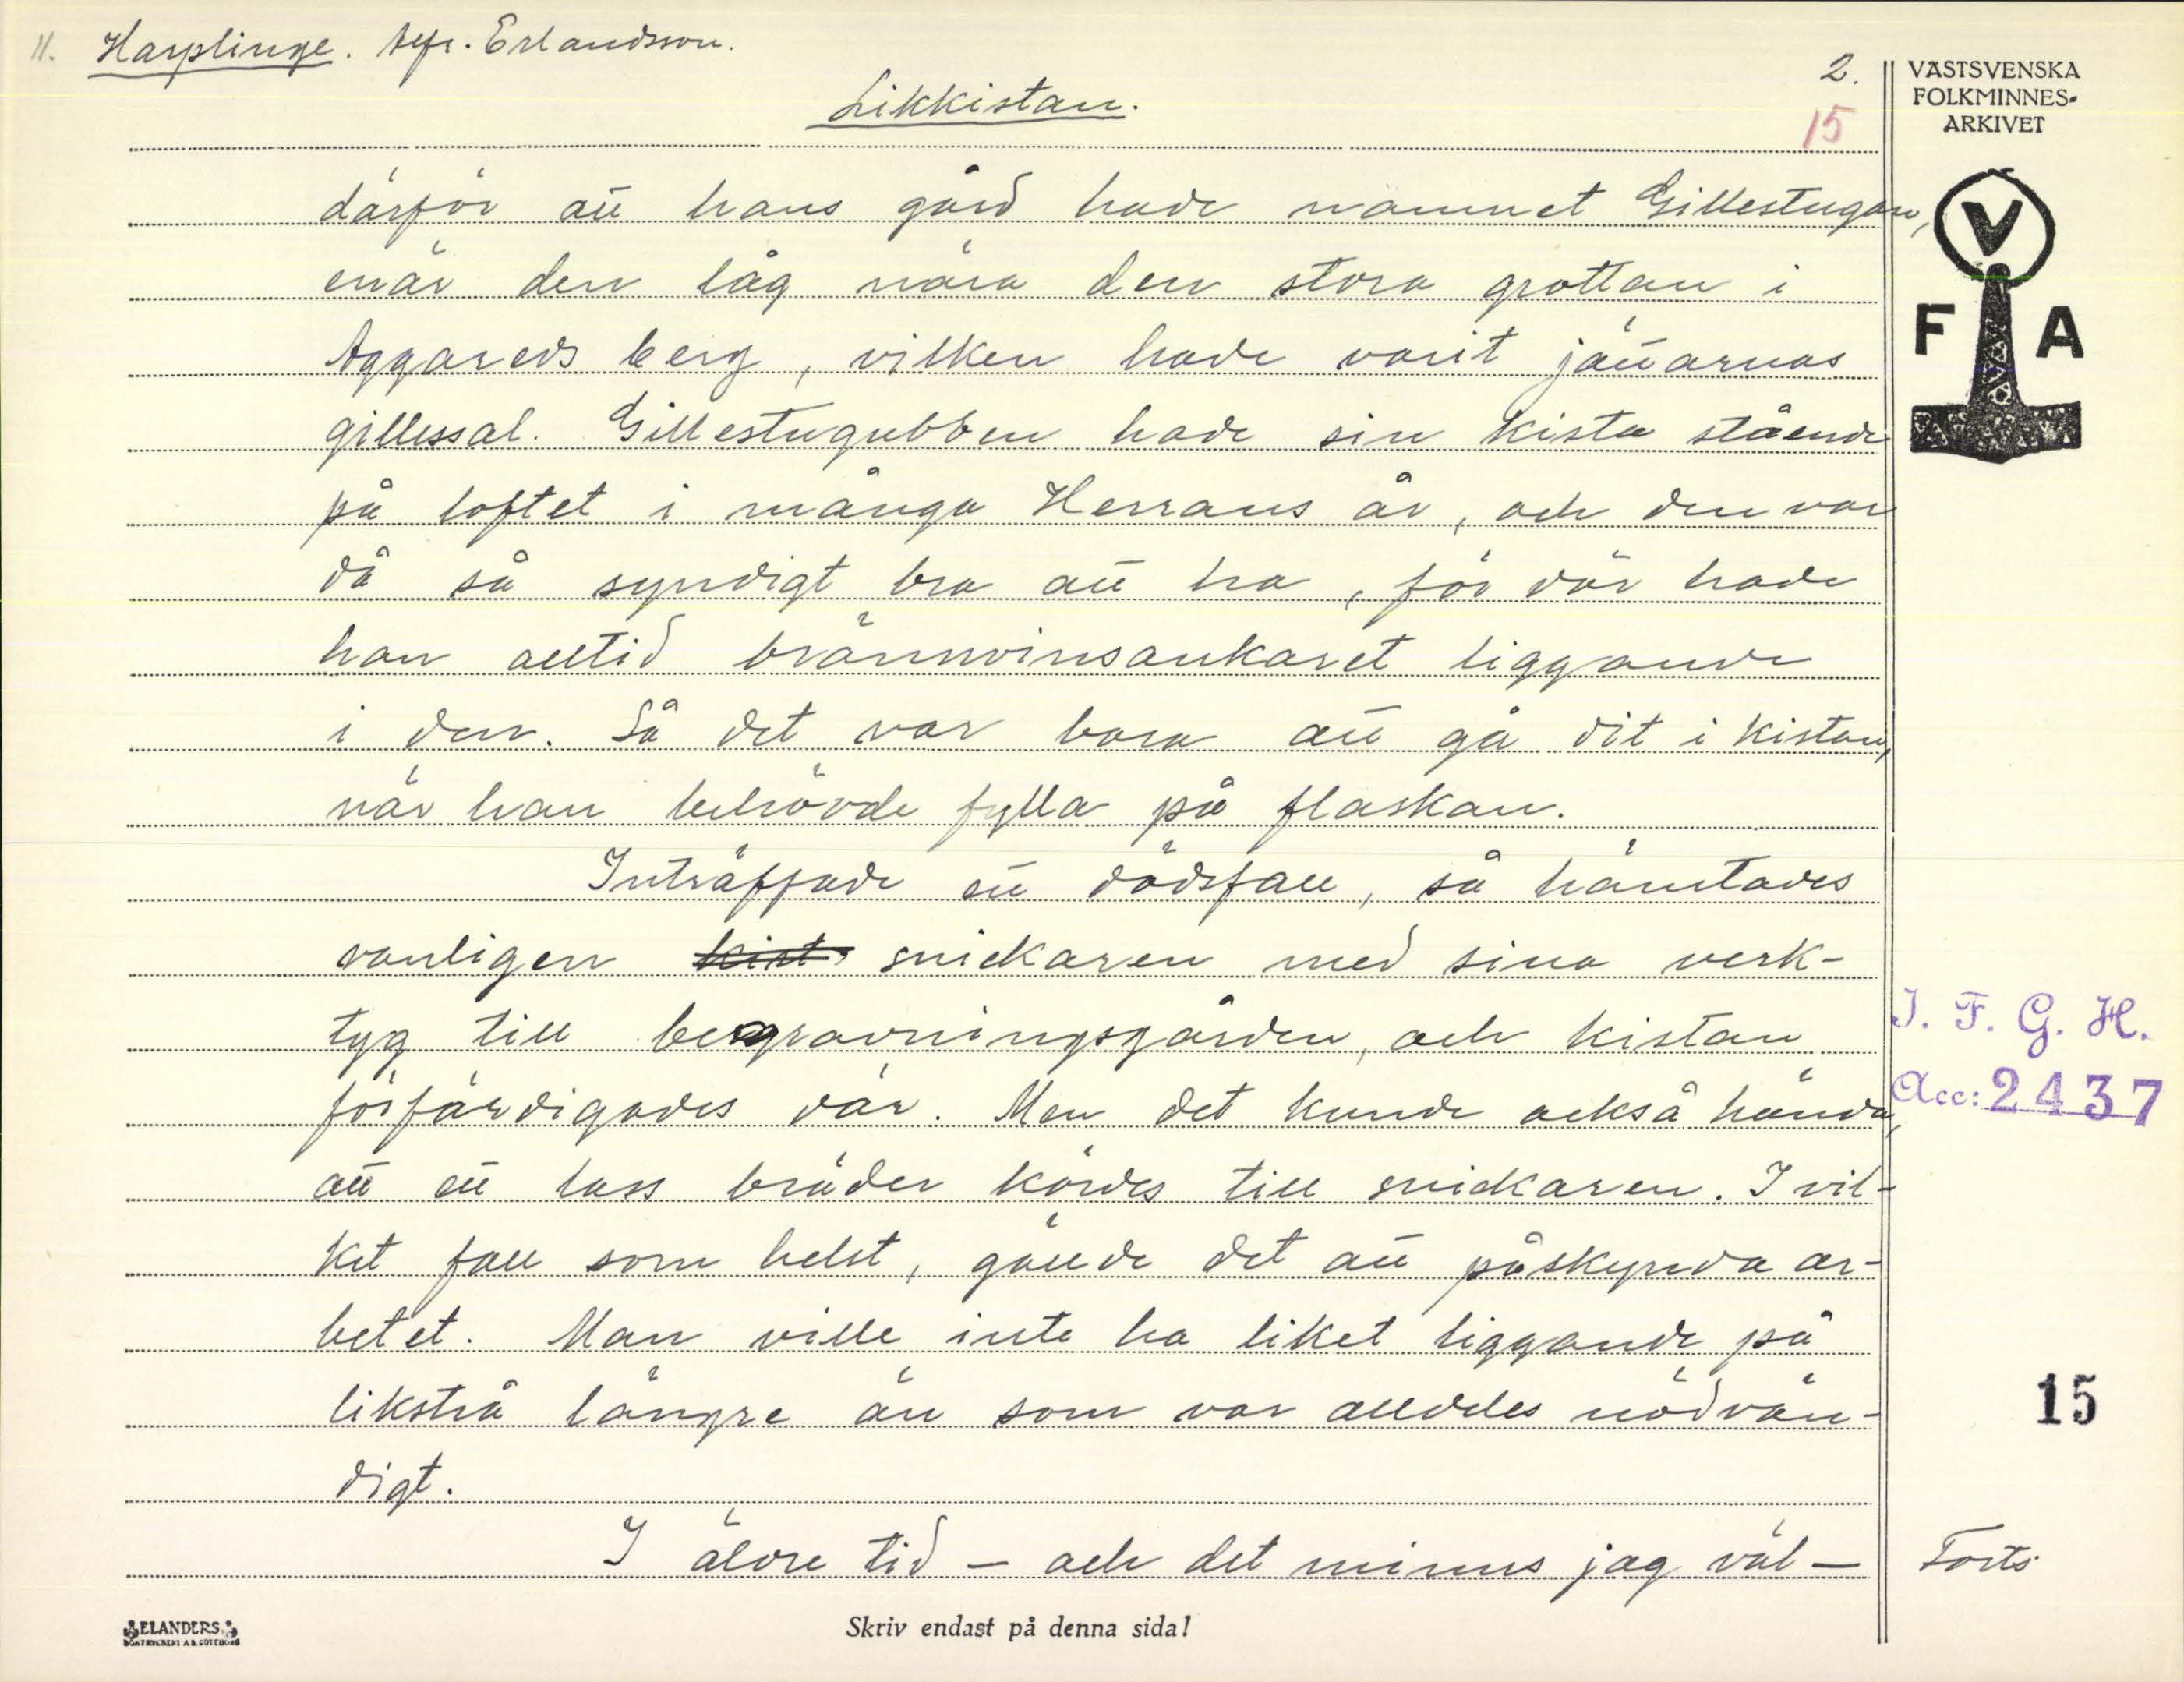 11. Harplinge. Uppt. Erlandsson.
2.
Likkistan.
15
VÄSTSVENSKA
FOLKMINNES-
ARKIVET
V
F A
därför att hans gård hade namnet Gillestugan,
enär den låg nära den stora grottan i
Aggareds berg, vilken hade varit jättarnas
gillessal. Gillestugubben hade sin kista stående
på loftet i många Herrans år, och den var
då så syndigt bra att ha, för där hade
han alltid brännvinsankaret liggande
i den. Så det var bara att gå dit i kistan,
när han behövde fylla på flaskan.
Inträffade ett dödsfall, så hämtades
vanligen kist snickaren med sina verk-
tyg till begravningsgården, och kistan
förfärdigades där. Men det kunde också hända,
att ett lass bräder kördes till snickaren. I vil-
ket fall som helst, gällde det att påskynda ar-
betet. Man ville inte ha liket liggande på
likstrå längre än som var alldeles nödvän-
digt.
I äldre tid – och det minns jag väl –
I. F. G. H.
Acc: 2437
15
Forts.
ELANDERS
BOKTRYCKERI A.B. GÖTEBORG
Skriv endast på denna sida!